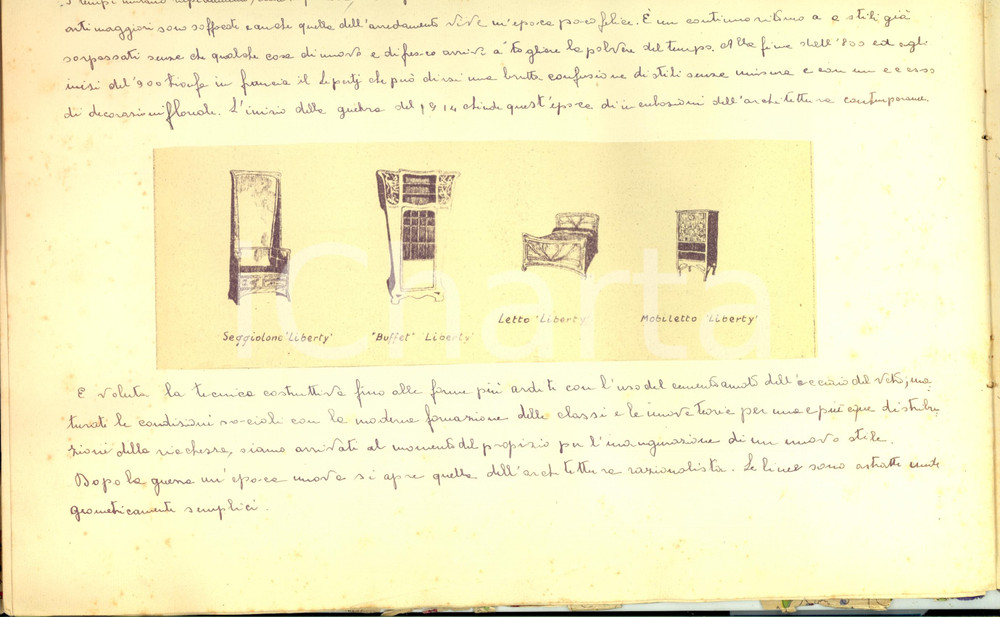 I tempi mutano rapidamente,
arti maggiori sono soffocate e anche quella dell'arredamento vive un'epoca poco felice. È un continuo ritorno a stili già
sorpassati senza che qualche cosa di nuovo e di fresco arrivi a togliere la polvere del tempo. Alla fine dell'800 ed agli
inizi del '900 trionfa in francia il Liberty che può dirsi una brutta confusione di stili senza misura e con un eccesso
di decorazioni floreali. L'inizio della guerra del 1914 chiude quest'epoca di involuzioni dell'architettura contemporanea.
Seggiolone 'Liberty'
"Buffet" 'Liberty'
Letto 'Liberty'
Mobiletto 'Liberty'
iCharta
E voluta la tecnica costruttiva fino alle forme più ardite con l'uso del cemento armato dell'acciaio del vetro; mu
turati le condizioni sociali con la moderna formazione delle classi e le nuove teorie per una più equa distribu
zioni della ricchezza, siamo arrivati al momento del propizio per l'inaugurazione di un nuovo stile.
Dopo la guerra un'epoca nuova si apre quella dell'architettura razionalista. Le linee sono astratte
geometricamente semplici.